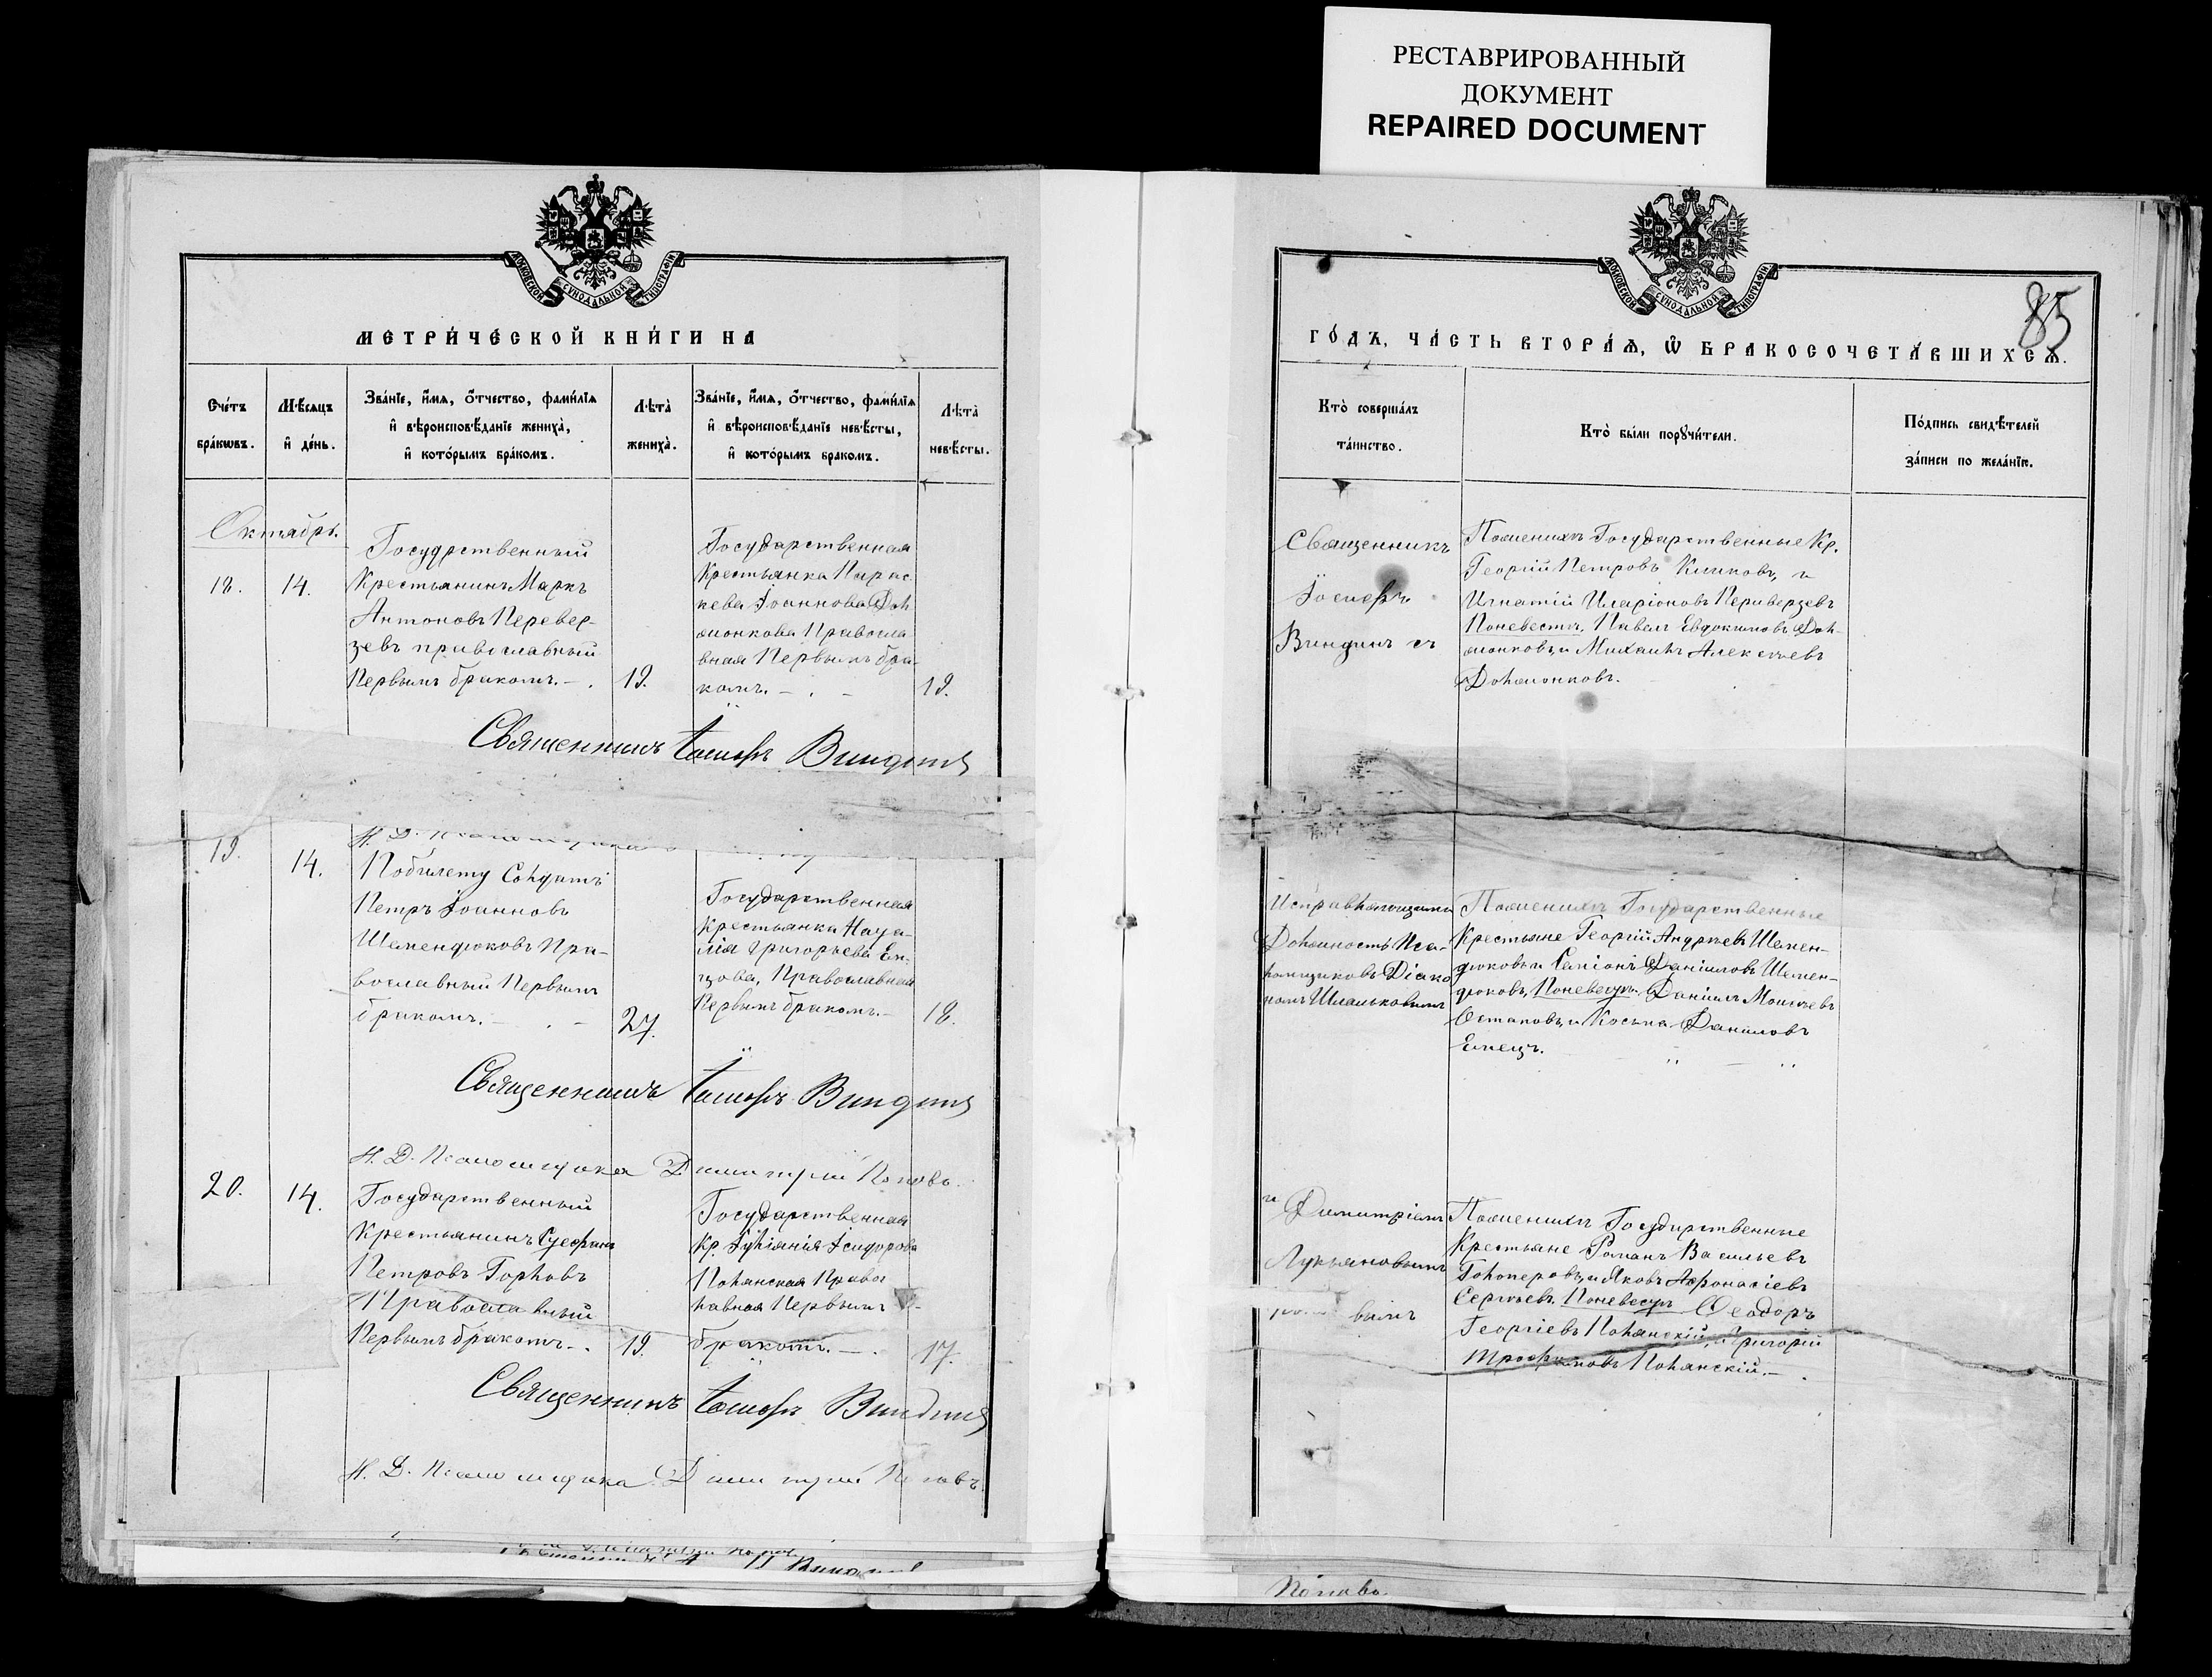 РЕСТАВРИРОВАННЫЙ
ДОКУМЕНТ
REPAIRED DOCUMENT
МОСКОВСКОЙ СУНОДАЛЬНОЙ ТИПОГРАФІИ
МЕТРИ́ЧЕСКОЙ КНИ́ГИ НА
Сче́тъ
бра́кѡвъ.
Мѣ́сяцъ
и҆ де́нь.
Зва́нїе, и҆́мя, ѻ҆́тчество, фами́лїя
и҆ вѣроисповѣ́данїе жениха̀,
и҆ кото́рымъ бра́комъ.
Лѣта̀
жениха̀.
Зва́нїе, и҆́мя, ѻ҆́тчество, фами́лїя
и҆ вѣроисповѣ́данїе невѣ́сты,
и҆ кото́рымъ бракомъ.
Лѣта̀
невѣ́сты.
Октябрь.
18.
14.
Госудрственный
Крестьянинъ Маркъ
Антоновъ Перевер-
зевъ православный
Первымъ бракомъ. - .
19.
Государственная
Крестьянка Парас
кева Іоаннова Дол
монкова Правосла
вная Первымъ бра-
комъ. - . -
19.
Священникъ Іосифъ Виндинъ
19.
14.
Н. Д. Псаломщика
Побилету Солдатъ
Петръ Іоанновъ
Шемендюковъ Пра-
вославный Первымъ
бракомъ. - . -
27.
Государственная
Крестьянка Ната-
лія Григорьева Ем-
цова, Православная
Первымъ бракомъ. -
18.
Священникъ Іосифъ Виндинъ
Н. Д. Псаломщика Димитрій Поповъ.
20.
14.
Государственный
Крестьянинъ Стефанъ
Петровъ Горловъ
Православный
Первымъ бракомъ - .
19.
Государственная
Кр. Іуліанія Ісидорова
Полянская Право
лавная Первымъ
бракомъ. - .
17.
Священникъ Іосифъ Виндинъ
Н. Д. Псаломщика Димитрій Поповъ
МОСКОВСКОЙ СУНОДАЛЬНОЙ ТИПОГРАФІИ
85
ГО́ДЪ, ЧА́СТЬ ВТОРА́Я, Ѡ҆ БРАКОСОЧЕТА́ВШИХСЯ.
Кто̀ соверша́лъ
та́инство.
Кто̀ бы́ли порꙋчи́тели.
По́дпись свидѣ́телей
за́писи по жела́нїю.
Священникъ
Іосифъ
Виндинъ съ
Поженихѣ Государственные Кр.
Георгій Петровъ Климовъ, и
Игнатій Иларіоновъ Периверзевъ
Поневестѣ, Павелъ Евдокимовъ Дол-
монковъ, и Михаилъ Алексѣевъ
Долмонковъ.
Исправляющимъ
Должность Пса-
ломщиковъ Діако
номъ Шмальковымъ
Поженихѣ Государственные
Крестьяне Георгій Андрѣевъ Шемен-
дюковъ и Гапіонъ Даніиловъ Шемен-
дюковъ, Поневестѣ. Даніилъ Моисѣевъ
Остаповъ, и Косьма Даніиловъ
Емецъ.
и Димитріемъ
Лукьяновымъ
Поженихѣ Государственные
Крестьяне Романъ Васильевъ
Голоперовъ, и Яковъ Афонасіевъ
Сергѣевъ, Поневестѣ Ѳеодоръ
Георгіевъ Полянскій, Григорій
Трофимовъ Полянскій. - .
вымъ
Попова